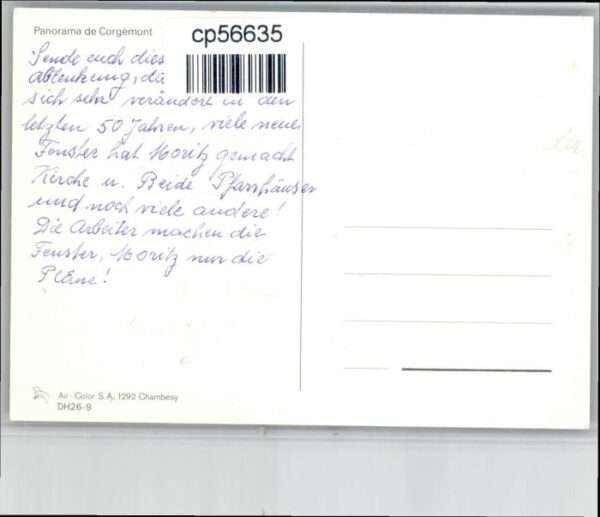 Panorama de Corgémont
cp56635
Sende euch dies
Ablenkung, da
sich sehr verändert in den
letzten 50 Jahren, viele neue
Fenster hat Moritz gemacht
Kirche u. Beide Pfarrhäuser
und noch viele andere!
Die Arbeiter machen die
Fenster, Moritz nur die
Pläne!
Air-Color S.A. 1292 Chambésy
DH26-9